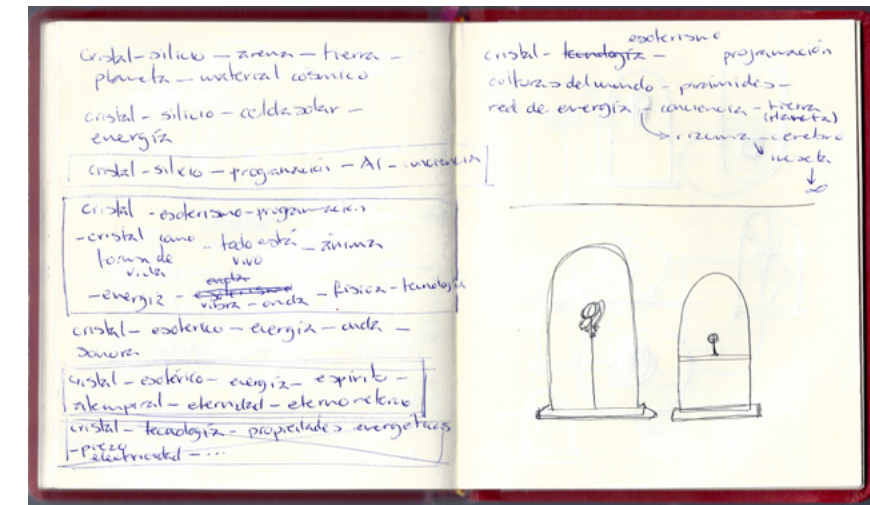 cristal - silicio - arena - tierra -
planeta - material cósmico
cristal - silicio - celda solar -
energía
cristal - silicio - programación - AI - conciencia
cristal - esoterismo - programación
- cristal como - todo está - ánima
forma de vivo
vida
onda
- energía - esoterismo - física - tecnología
vibra - onda
cristal - esotérico - energía - onda -
sonora
cristal - esotérico - energía - espíritu -
atemporal - eternidad - eterno retorno
cristal - tecnología - propiedades energéticas
- piezo
electricidad - ...
esoterismo
cristal - tecnología - programación
culturas del mundo - pirámides -
red de energía - conciencia - tierra
(planeta)
rizoma - cerebro
∞